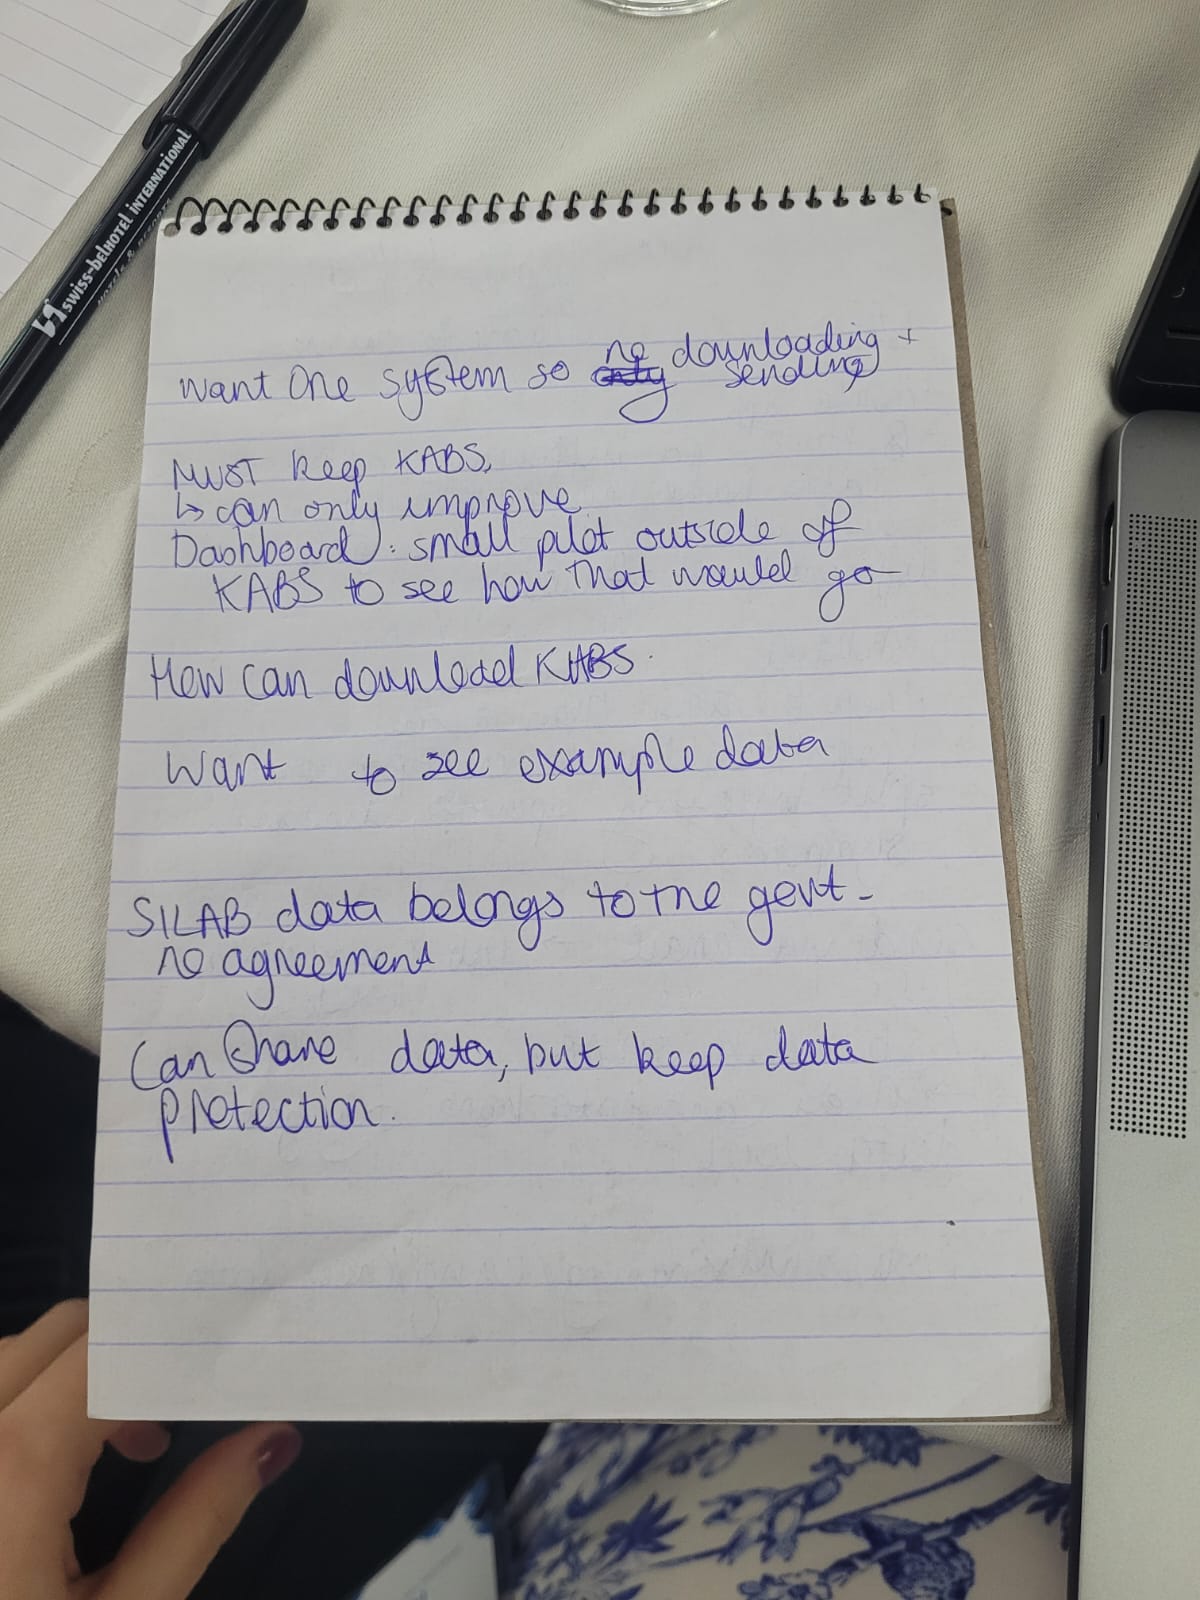 swiss-belHOTEL INTERNATIONAL
want one system so no downloading +
sending
MUST keep KABS,
↳ can only improve
Dashboard: small pilot outside of
KABS to see how that would go
How can download KABS.
Want to see example data
SILAB data belongs to the govt-
no agreement
Can share data, but keep data
protection.